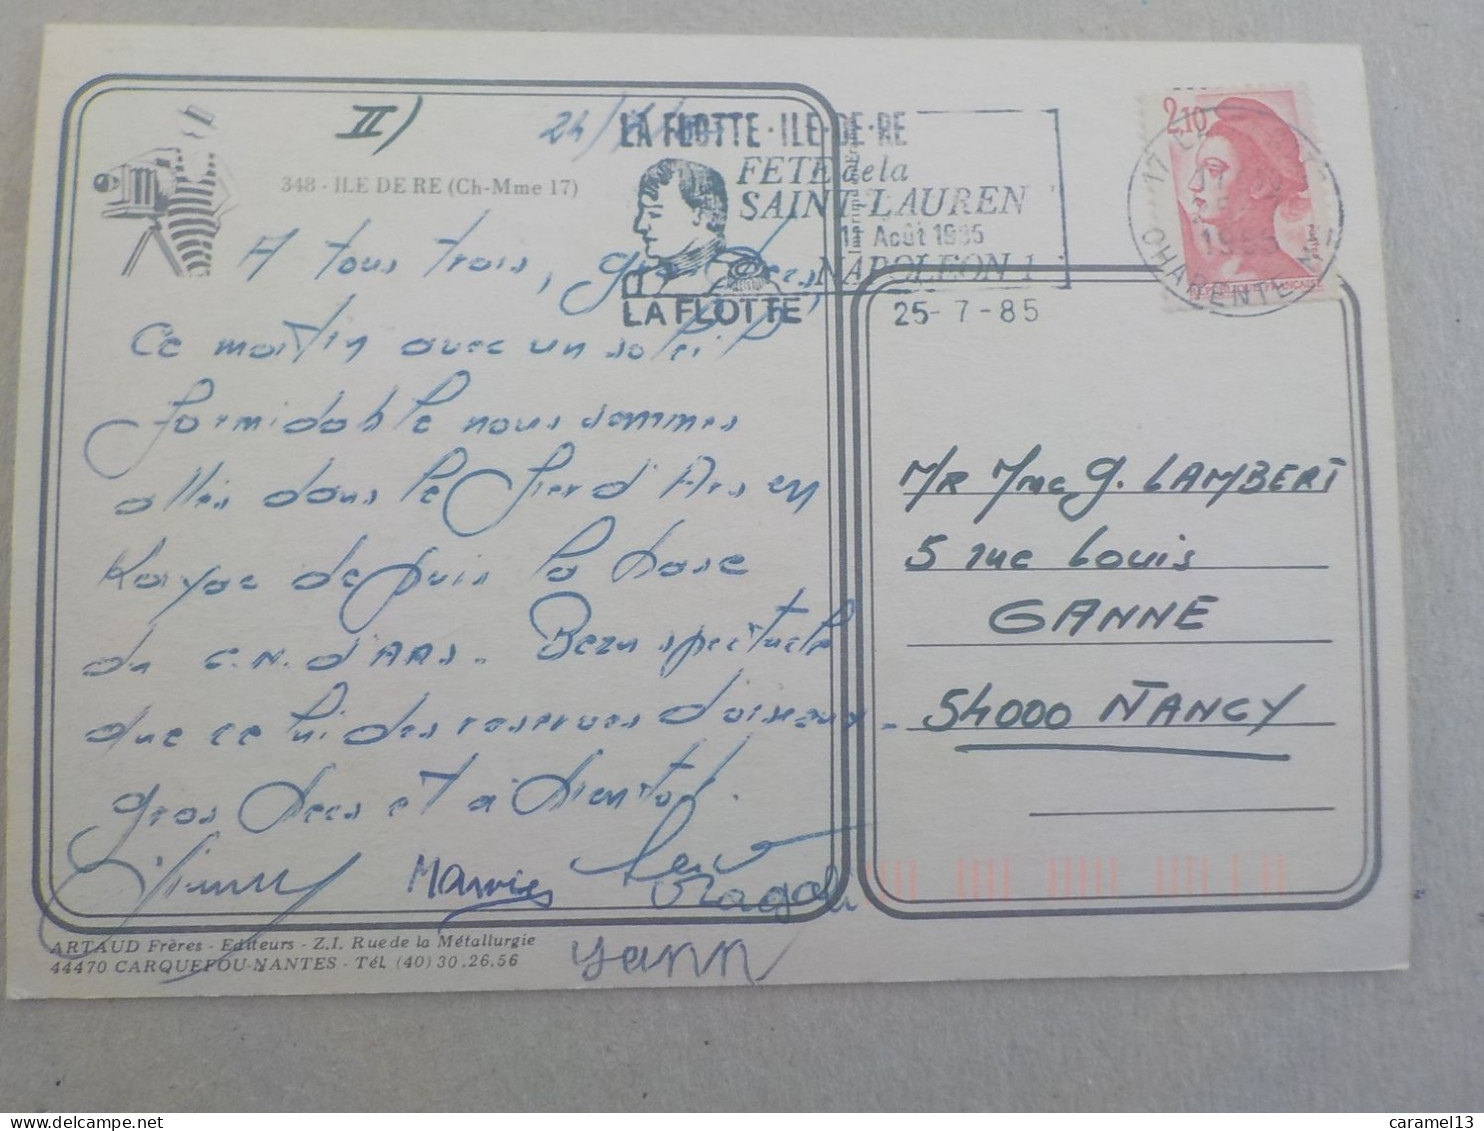 II)
24/
348 - ILE DE RE (Ch-Mme 17)
LA FLOTTE · ILE · DE · RE
FETE de la
SAINT-LAUREN
11 Août 1985
NAPOLEON 1
LA FLOTTE
25-7-85
2,10
17 LA
1985
CHARENTE
A tous trois, gros
Ce matin avec un soleil
formidable nous sommes
allés dans le fier d'Ars en
Kayac depuis la base
du C.N. d'ARS. Beau spectacle
que celui des reserves d'oiseaux.
gros becs et à bientot.
Marvies
Magali
Yann
Mr Mme G. LAMBERT
5 rue Louis
GANNE
54000 NANCY
ARTAUD Frères - Editeurs - Z.I. Rue de la Métallurgie
44470 CARQUEFOU-NANTES - Tél. (40) 30.26.56
caramel13